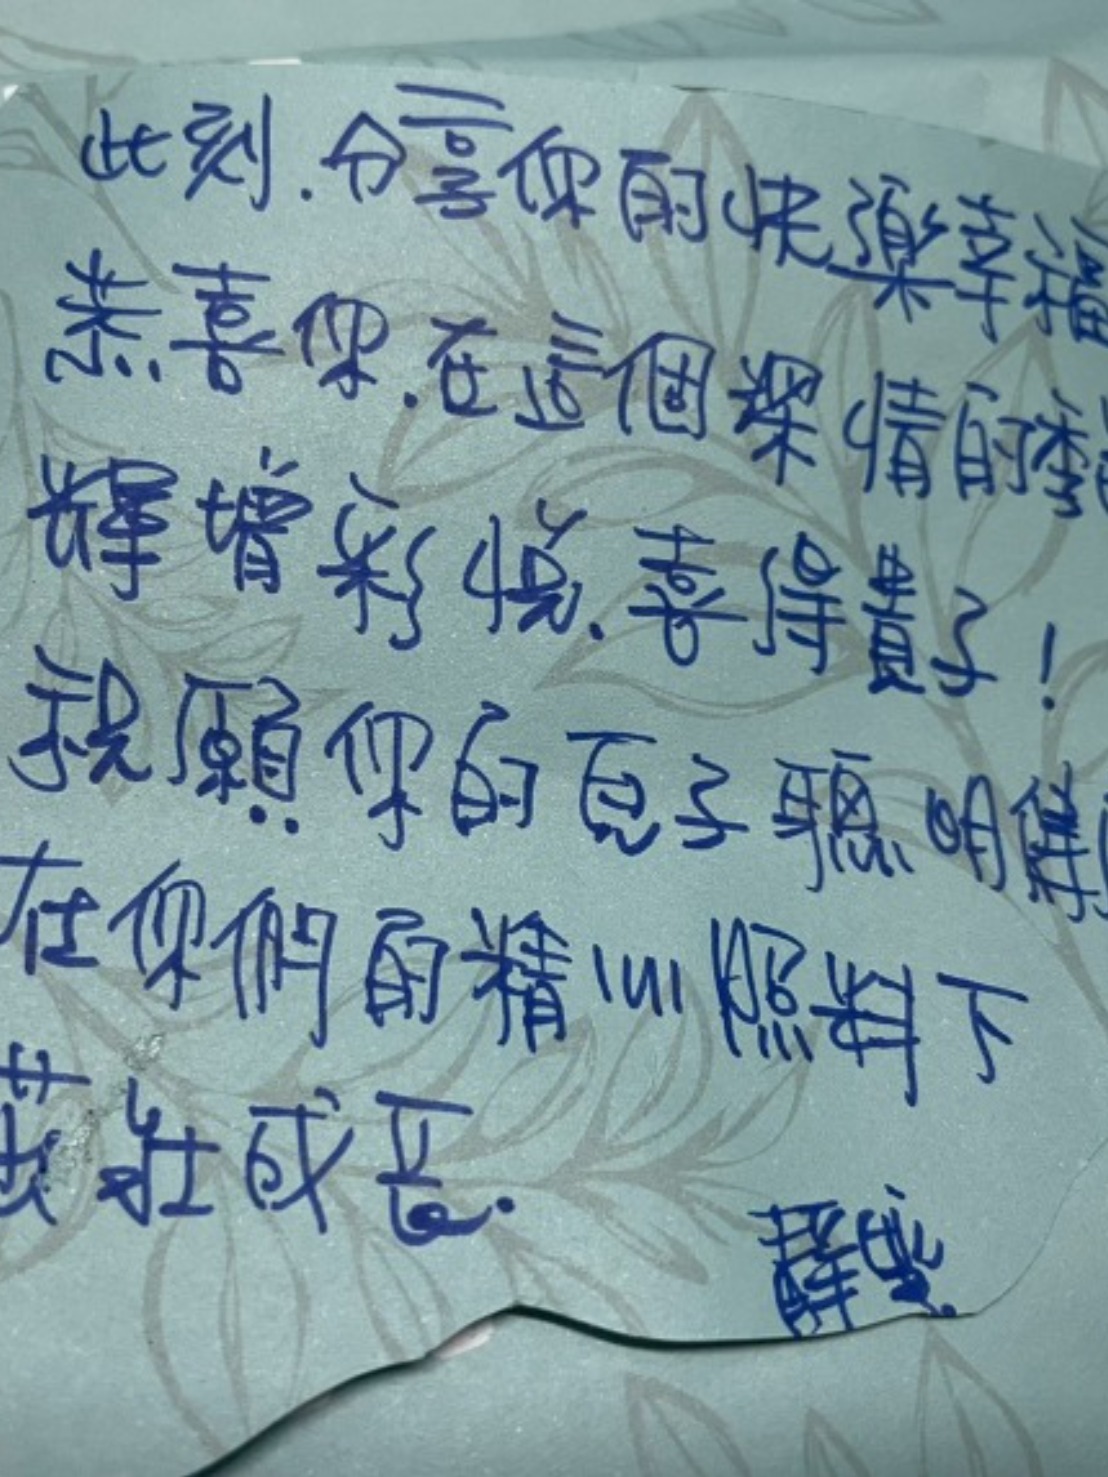 此刻.分享你的快樂幸福
恭喜你.在這個深情的季
輝增彩悅.喜得貴子!
祝願你的兒子聰明健
在你們的精心照料下
茁壯成長.